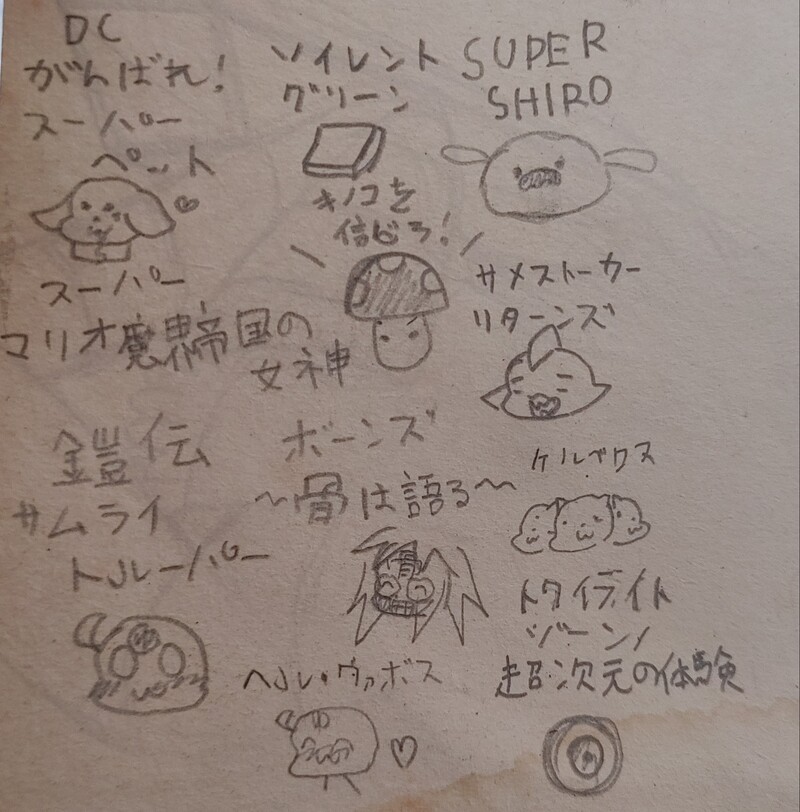 DC
がんばれ!
スーパー
ペット
ソイレント
グリーン
SUPER
SHIRO
キノコを
信じろ!
スーパー
マリオ魔界帝国の
女神
サメストーカー
リターンズ
鎧伝
サムライ
トルーパー
ボーンズ
〜骨は語る〜
ケルベロス
トワイライト
ゾーン/
超次元の体験
ヘルヴァボス